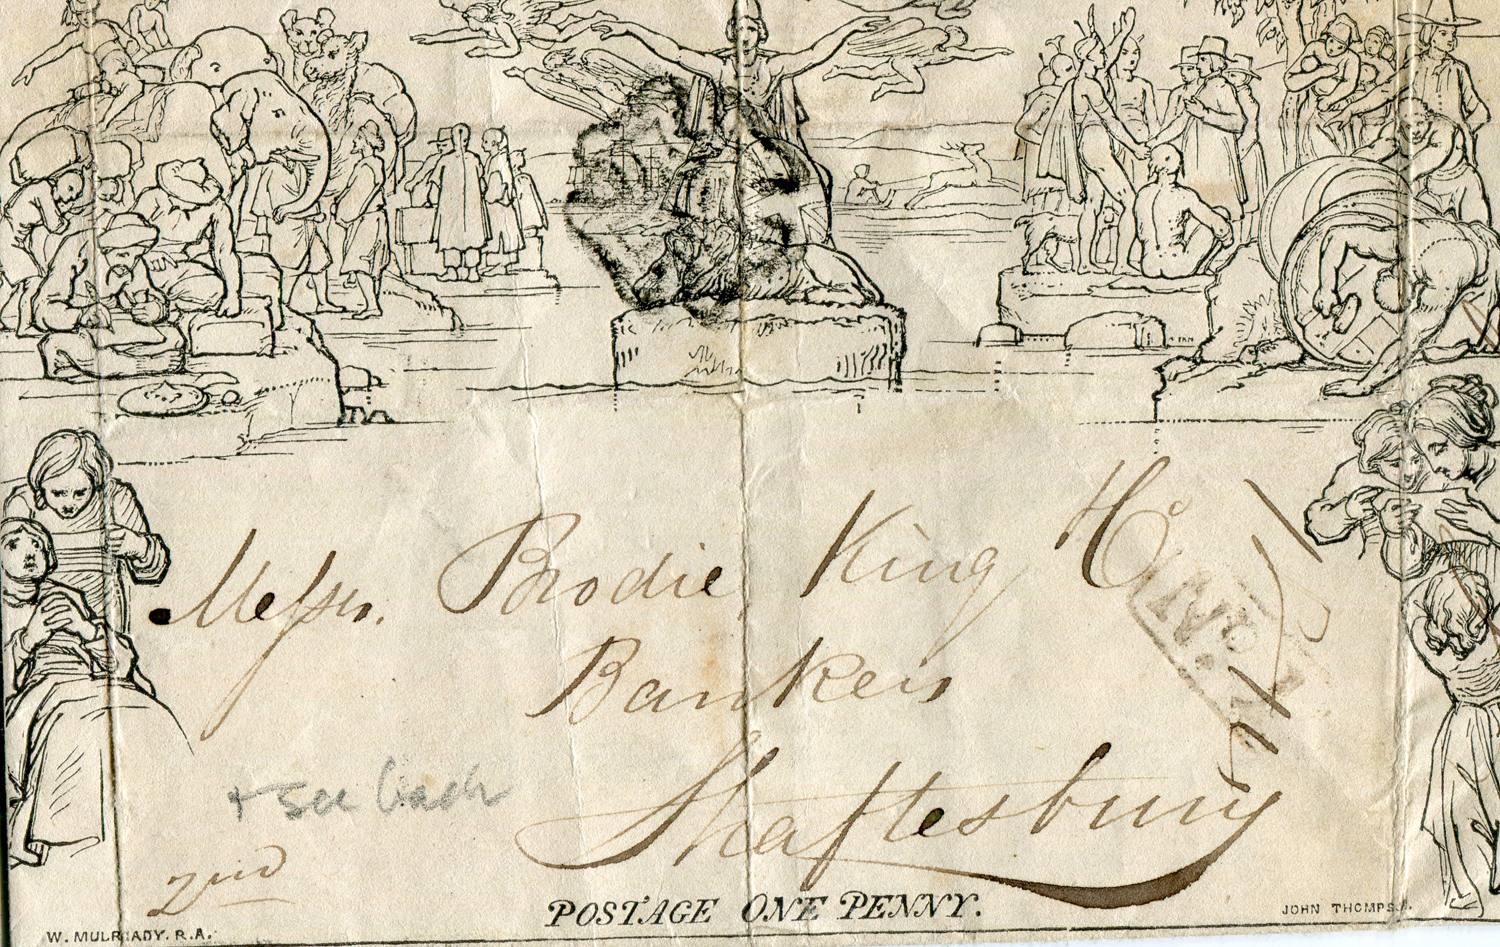 Messrs. Brodie King & Co
Bankers
Shaftesbury
+ see back
2nd
POSTAGE ONE PENNY.
W. MULREADY. R.A.
JOHN THOMPS